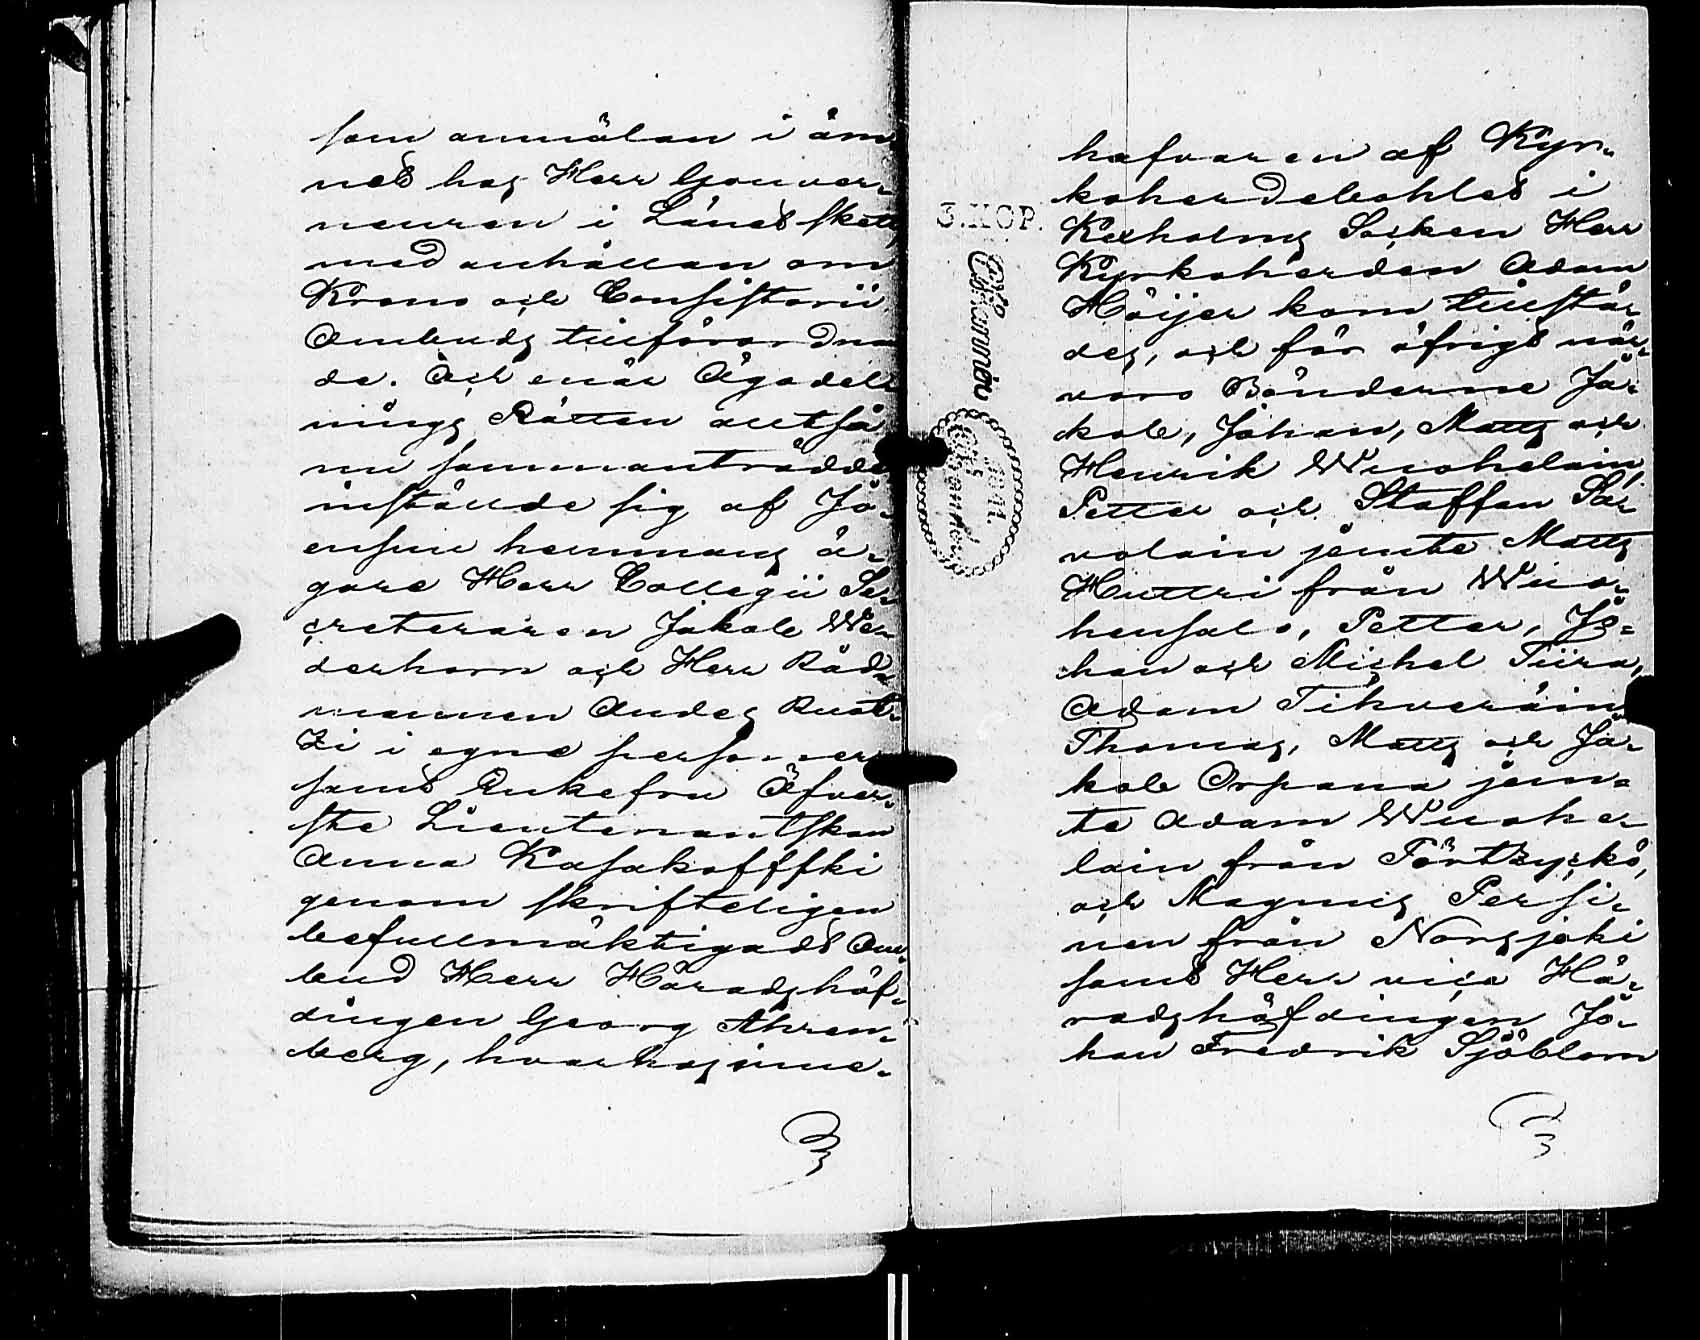 som anmälan i äm
net hos Herr Gouver-
neuren i Länet skett,
med anhållan om
Krono och Consistorii
Ombuds tillförordnan
de. Och enär Ägodel-
nings Rätten alltså
nu sammanträdde
inställde sig af Jo-
ensuu hemmans ä-
gare Herr Collegii Se-
creteraren Jakob We-
derhorn och Herr Råd-
mannen Anders Ruot-
zi i egne personer
samt Enkefru Öfver-
ste Lieutenantskan
Anna Kasakoffski
genom skrifteligen
befullmäktigadt Om-
bud Herr Häradshöf-
dingen Georg Ahren-
berg, hvarhos inne-
hafvaren af Kyr-
koherdebohlet i
Kexholms Socken Herr
Kyrkoherden Adam
Höijer kom tillstä-
des, och för öfrigt när-
voro Bönderne Ja-
kob, Johan, Matts och
Henrik Wuohelain,
Petter och Staffan Sa-
volain jemte Matts
Huttri från Wuo-
hensalo, Petter, Jo-
han och Michel Tiira,
Adam Tihveräin
Thomas, Matts och Ja-
kob Orpana jem-
te Adam Wuohe-
lain från Pörtzyckö,
och Magnus Persi-
nen från Norsjoki
samt Herr vice Hä-
radshöfdingen Jo-
han Fredrik Sjöblom
3.KOP.